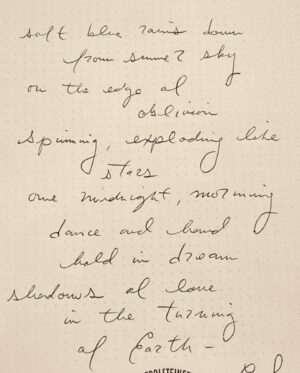 soft blue rains down
from summer sky
on the edge of
oblivion
spinning, exploding like
stars
one midnight, morning
dance and hand
hold in dream
shadows of love
in the turning
of Earth —